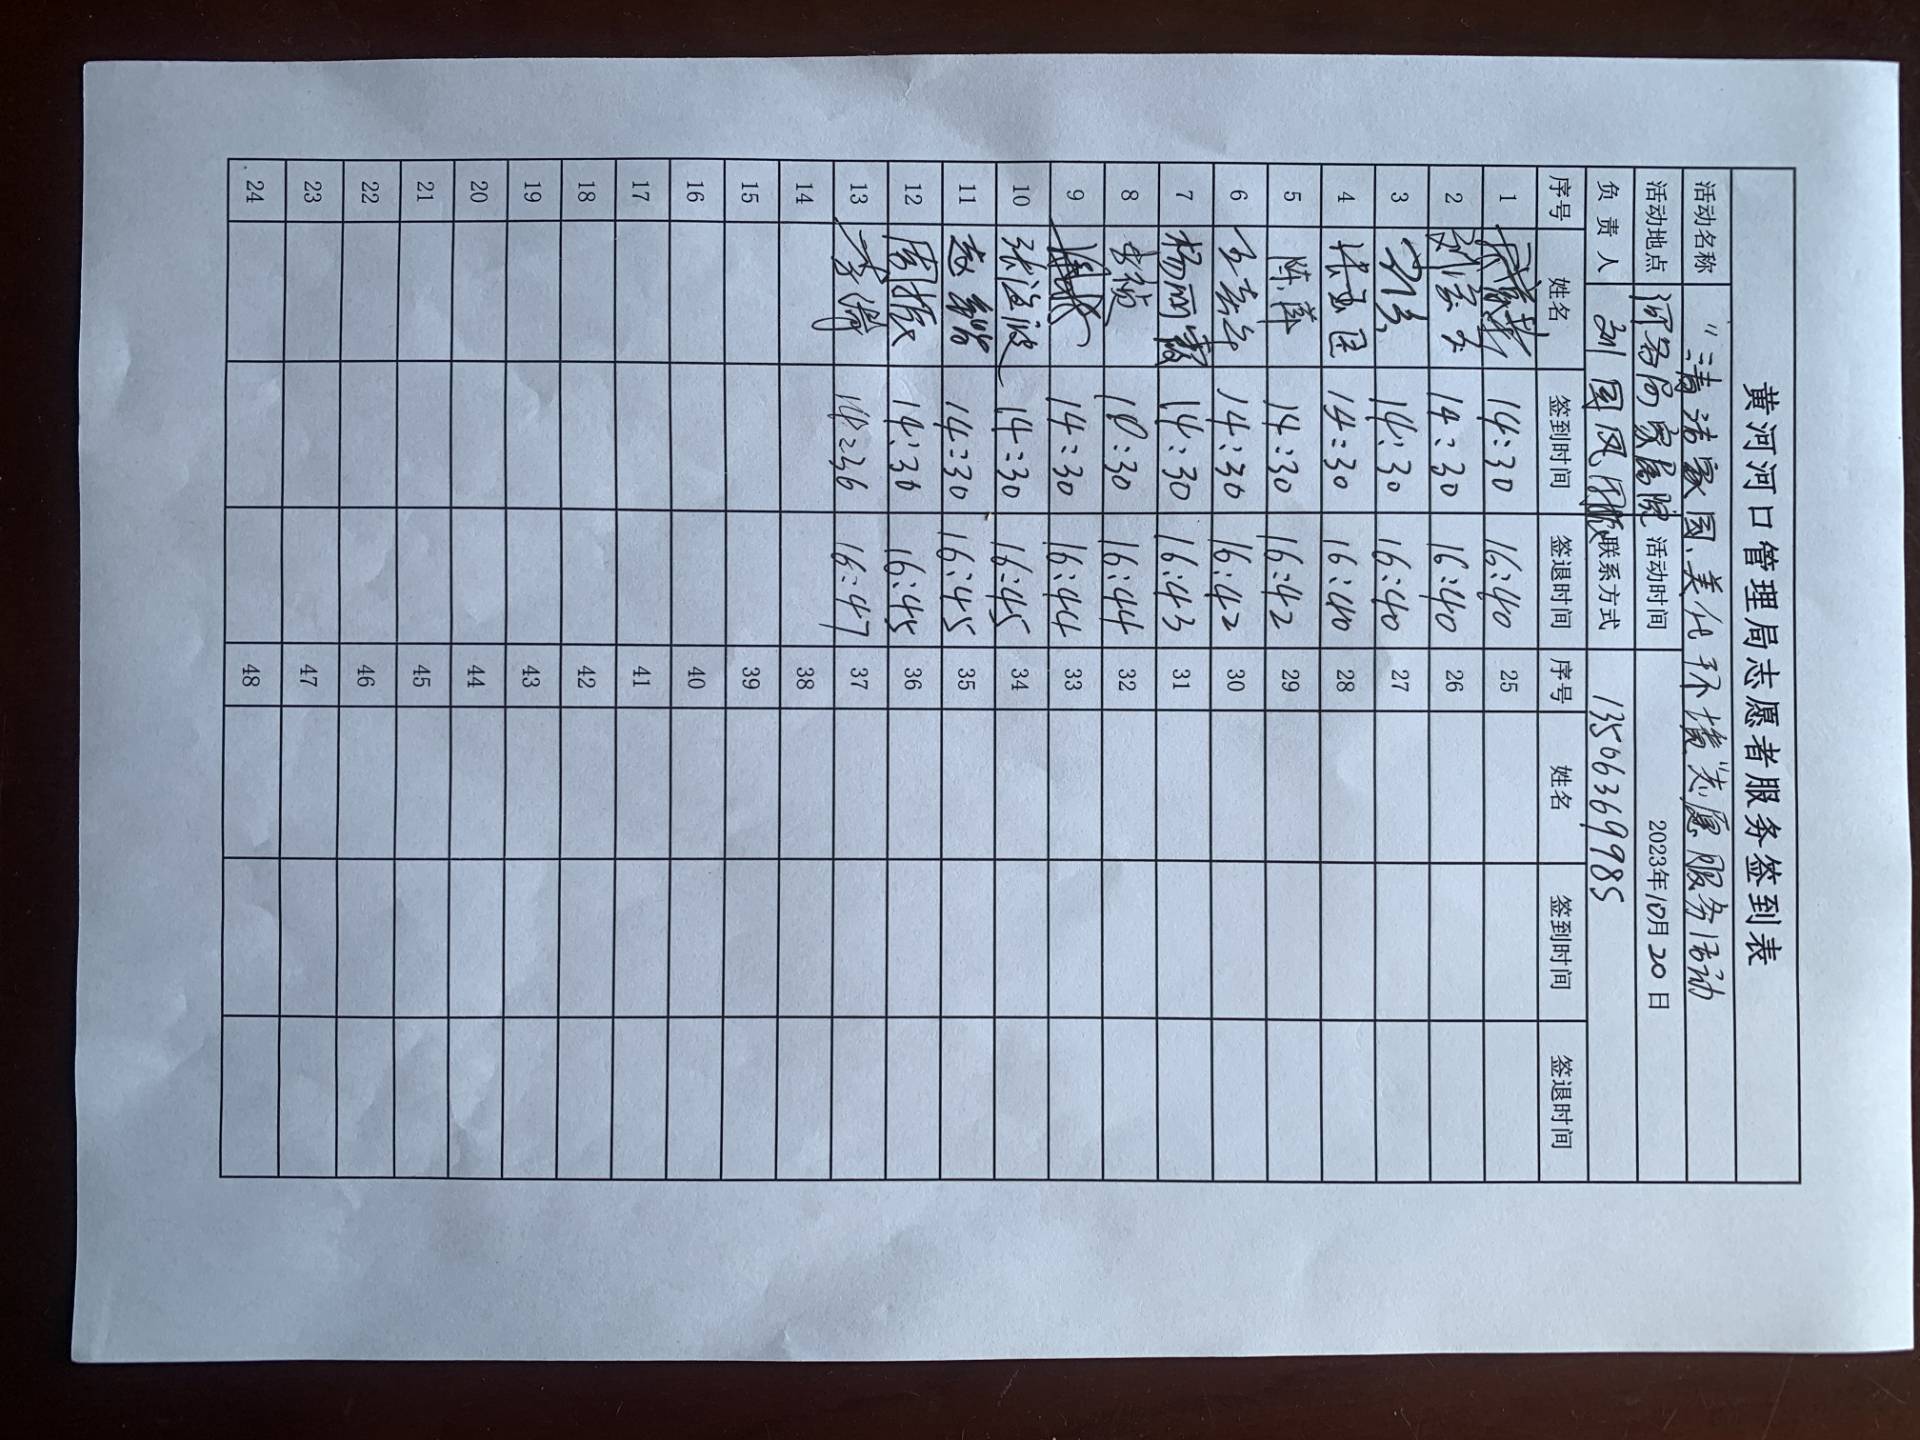 黄河河口管理局志愿者服务签到表
活动名称 “清洁家园、美化环境”志愿服务活动
活动地点 家属院 活动时间 2023年10月20日
负责人 联系方式 13506369985
序号 姓名 签到时间 签退时间 序号 姓名 签到时间 签退时间
1 14:30 16:40 25
2 14:30 16:40 26
3 14:30 16:40 27
4 14:30 16:40 28
5 陈萍 14:30 16:42 29
6 14:30 16:42 30
7 杨丽霞 14:30 16:43 31
8 18:30 16:44 32
9 14:30 16:44 33
10 张海波 14:30 16:45 34
11 14:30 16:45 35
12 周振 14:30 16:45 36
13 李 14:36 16:47 37
14 38
15 39
16 40
17 41
18 42
19 43
20 44
21 45
22 46
23 47
24 48